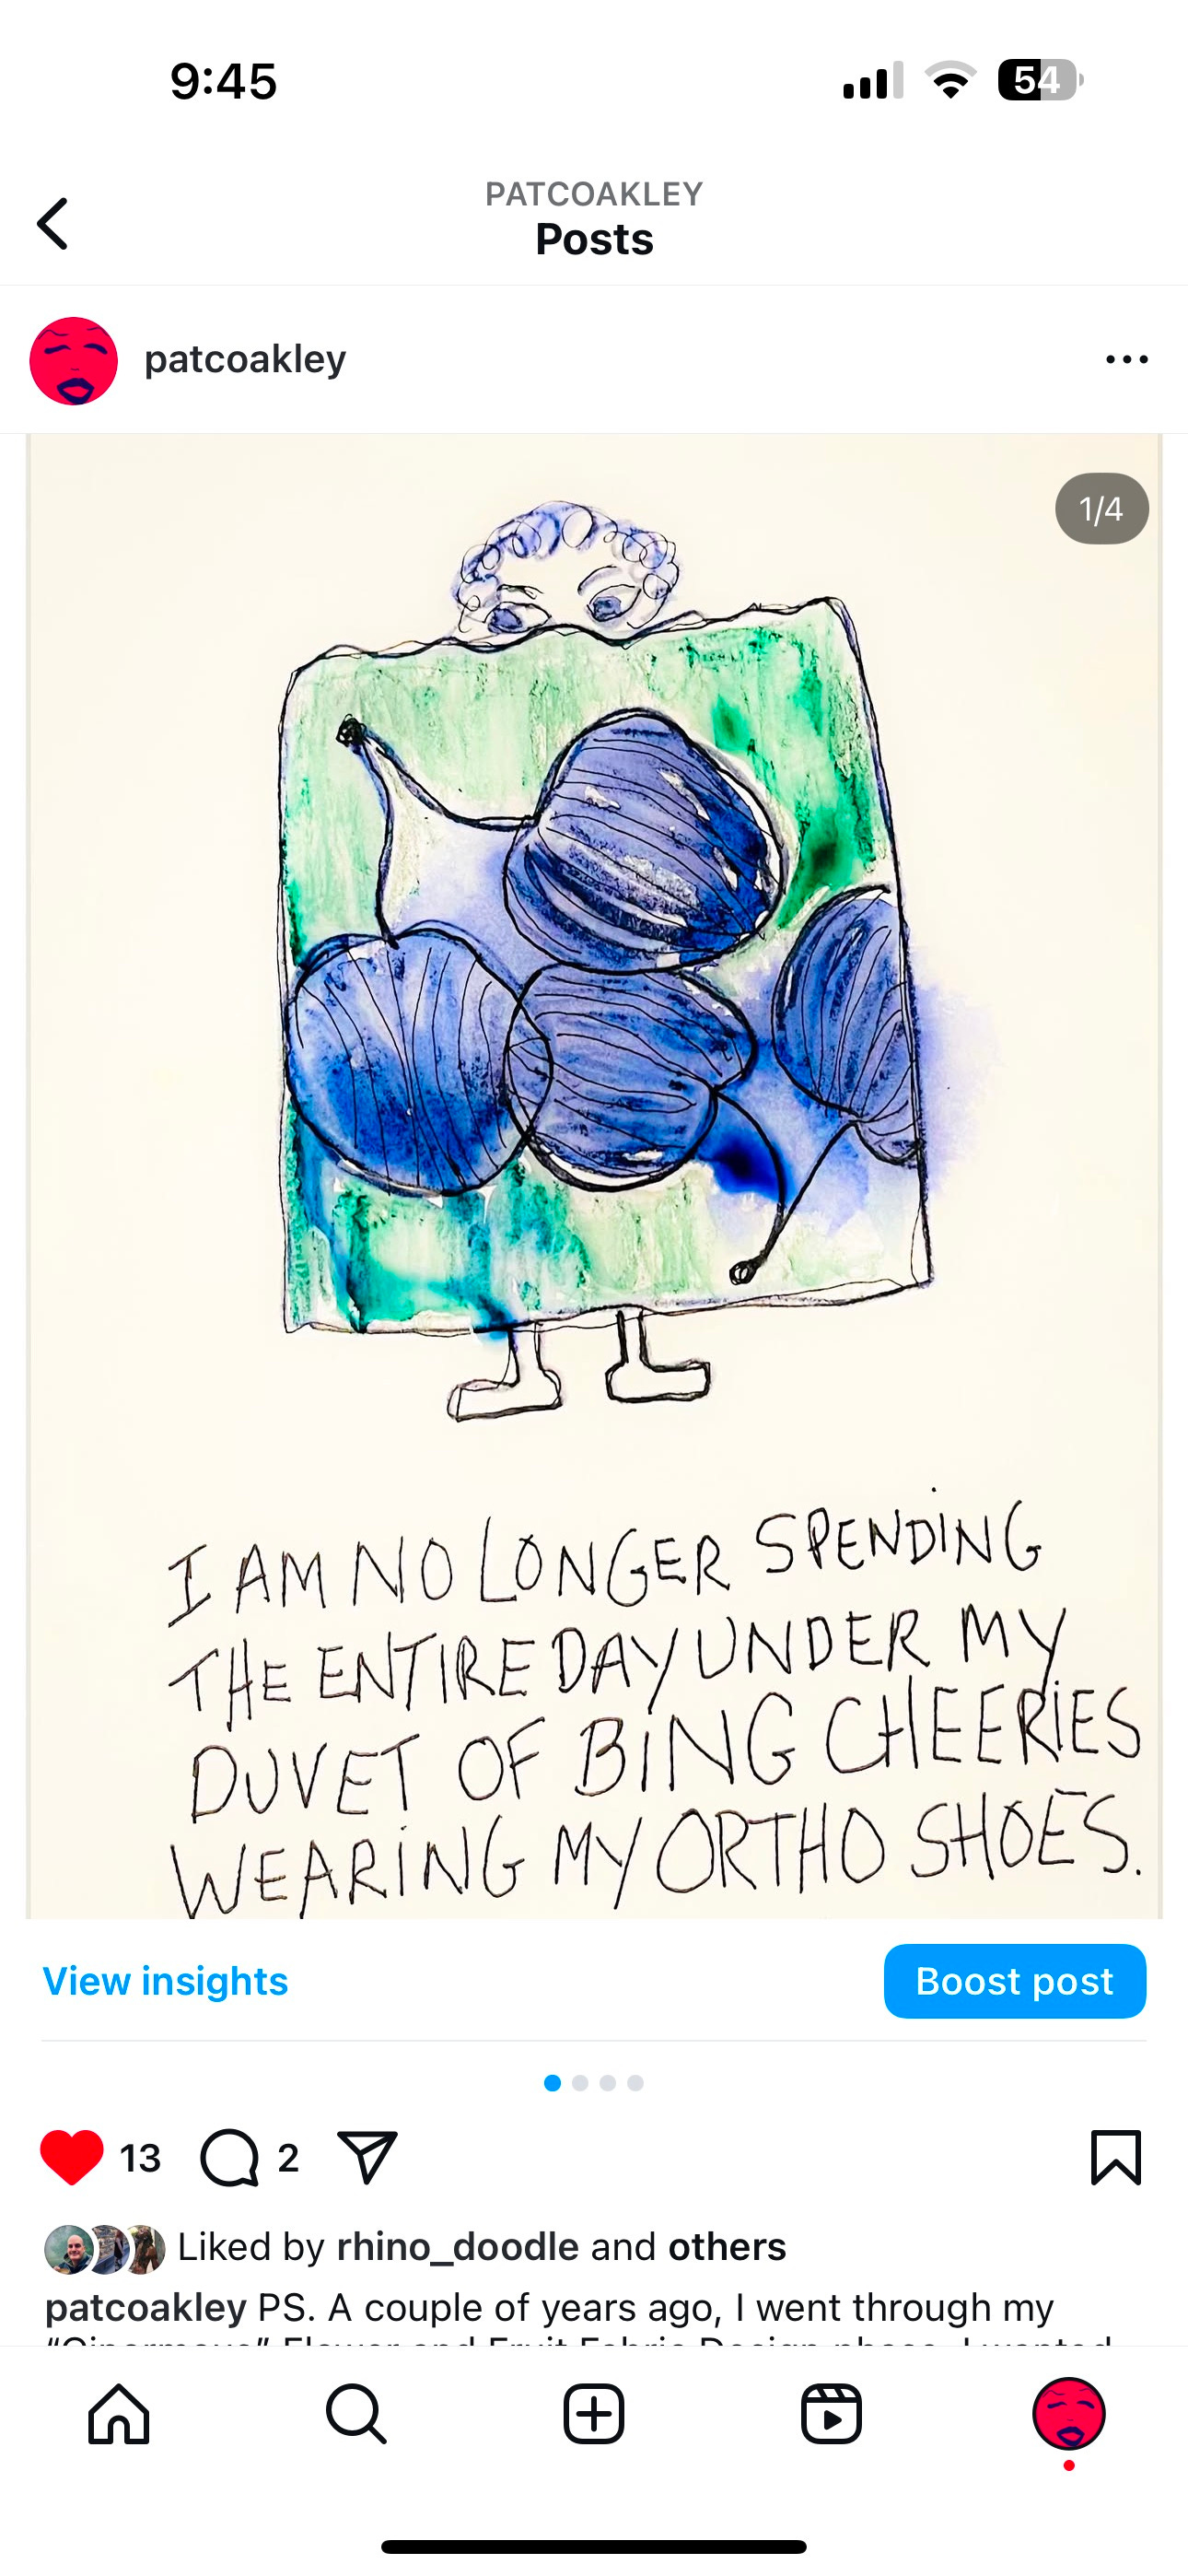 9:45
54
PATCOAKLEY
Posts
patcoakley
1/4
I AM NO LONGER SPENDING
THE ENTIRE DAY UNDER MY
DUVET OF BING CHEERIES
WEARING MY ORTHO SHOES.
View insights
Boost post
13
2
Liked by rhino_doodle and others
patcoakley PS. A couple of years ago, I went through my
“Ginormous” Flower and Fruit Fabric Design phase. I wanted